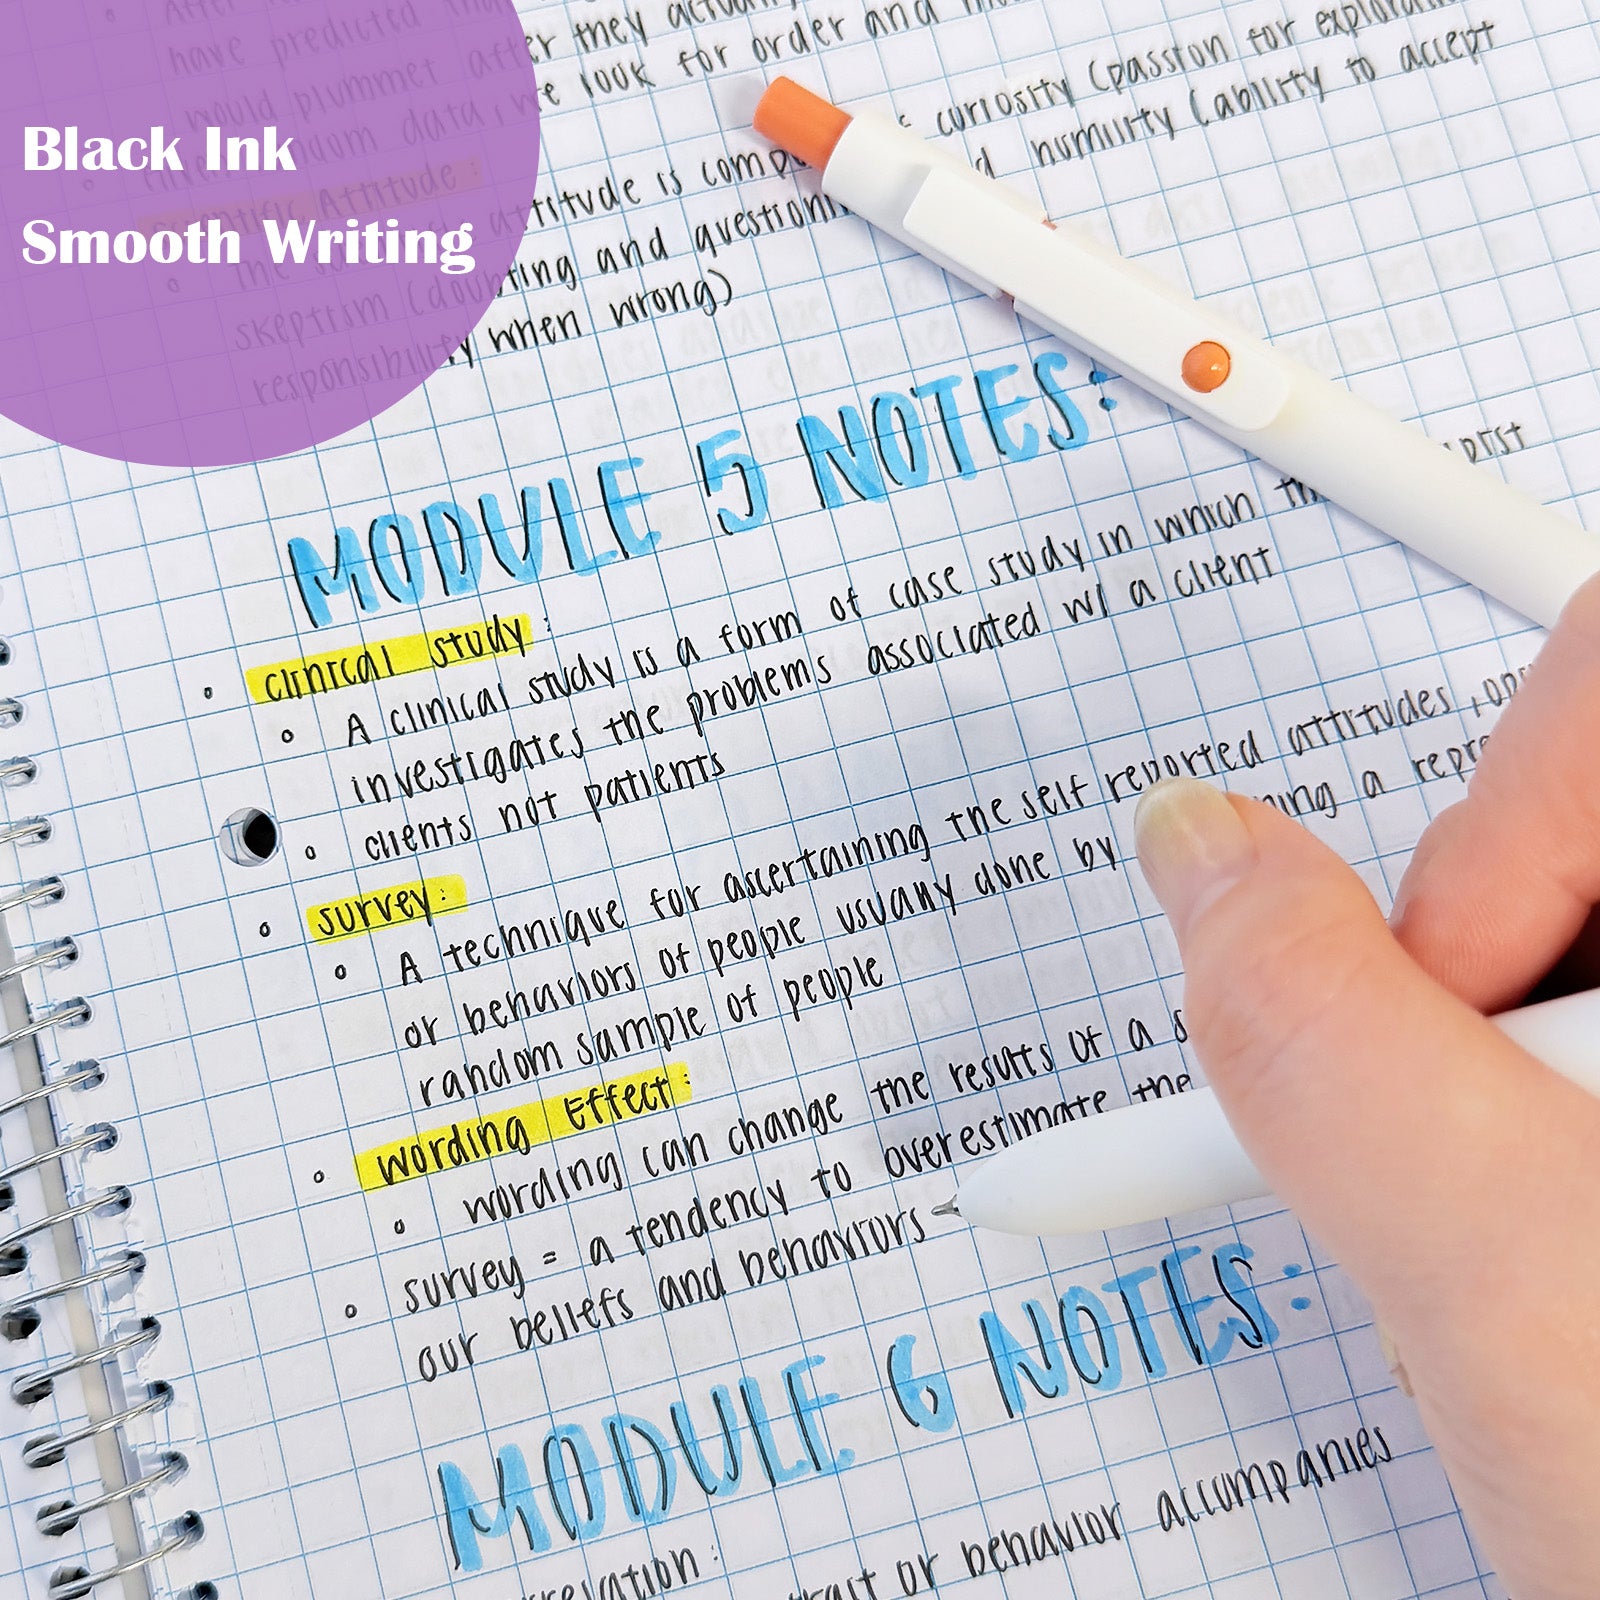 Black Ink
Smooth Writing
have predicted
would plummet after they actually
data, we look for order and
Attitude:
attitude is curiosity (passion for
skeptism (doubting and questioning humility (ability to accept
responsibility when wrong)
MODULE 5 NOTES:
clinical study:
A clinical study is a form of case study in which
investigates the problems associated w/ a client
clients not patients
survey:
A technique for ascertaining the self reported attitudes,
or behaviors of people usually done by a
random sample of people
wording Effect:
wording can change the results of a
survey = a tendency to overestimate the
our beliefs and behaviors
MODULE 6 NOTES:
trait or behavior accompanies